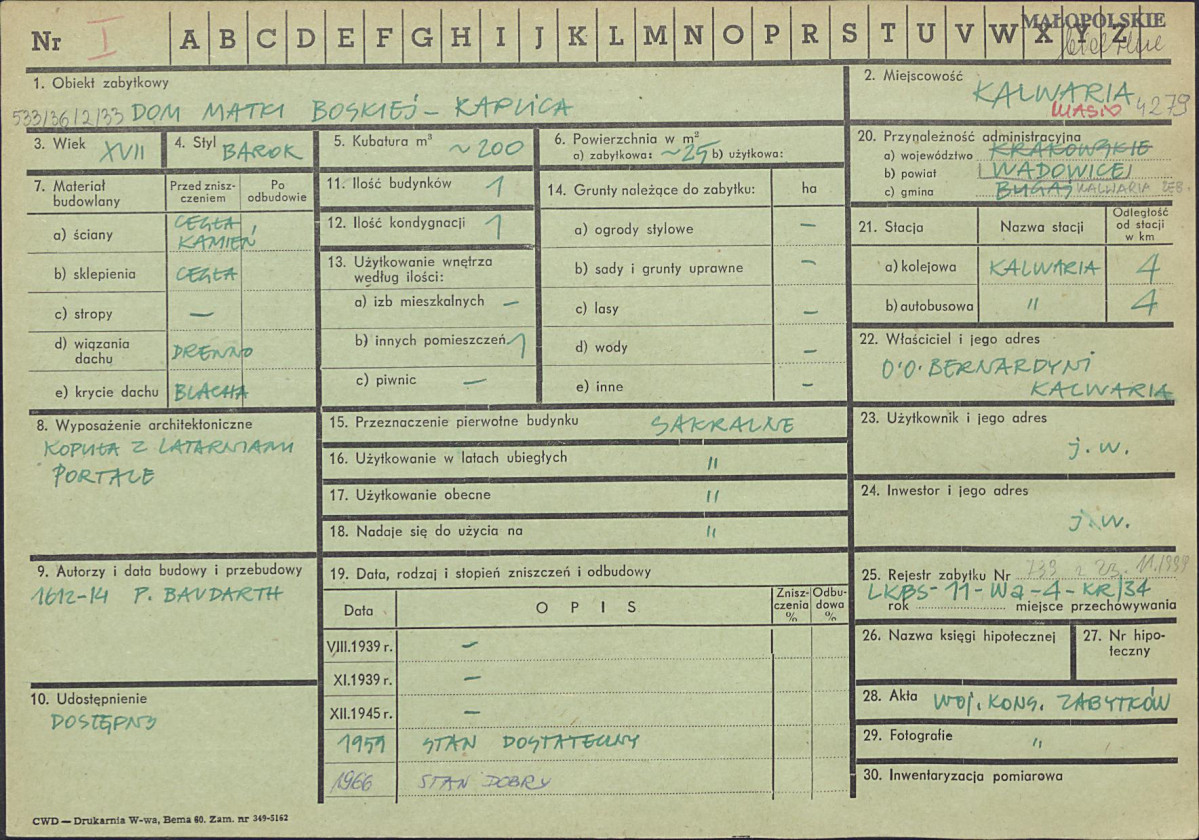 Nr I A B C D E F G H I J K L M N O P R S T U V W X Y Z
MAŁOPOLSKIE
1. Obiekt zabytkowy
533/36/2/33 DOM MATKI BOSKIEJ – KAPLICA
2. Miejscowość
KALWARIA
MIASTO 4279
3. Wiek XVII
4. Styl BAROK
5. Kubatura m³ ~200
6. Powierzchnia w m²
a) zabytkowa: ~25 b) użytkowa:
20. Przynależność administracyjna
a) województwo KRAKOWSKIE
b) powiat WADOWICE
c) gmina BUGAJ KALWARIA ZEB.
7. Materiał budowlany
Przed zniszczeniem
Po odbudowie
a) ściany CEGŁA KAMIEŃ
b) sklepienia CEGŁA
c) stropy —
d) wiązania dachu DREWNO
e) krycie dachu BLACHA
11. Ilość budynków 1
12. Ilość kondygnacji 1
13. Użytkowanie wnętrza według ilości:
a) izb mieszkalnych –
b) innych pomieszczeń 1
c) piwnic —
14. Grunty należące do zabytku: ha
a) ogrody stylowe –
b) sady i grunty uprawne –
c) lasy –
d) wody –
e) inne –
21. Stacja Nazwa stacji Odległość od stacji w km
a) kolejowa KALWARIA 4
b) autobusowa " 4
22. Właściciel i jego adres
O'O. BERNARDYNI
KALWARIA
8. Wyposażenie architektoniczne
KOPUŁA Z LATARNIAMI
PORTALE
15. Przeznaczenie pierwotne budynku SAKRALNE
16. Użytkowanie w latach ubiegłych "
17. Użytkowanie obecne "
18. Nadaje się do użycia na "
23. Użytkownik i jego adres
j.w.
24. Inwestor i jego adres
j.w.
9. Autorzy i data budowy i przebudowy
1612-14 P. BAUDARTH
10. Udostępnienie
DOSTĘPNY
19. Data, rodzaj i stopień zniszczeń i odbudowy
Data OPIS Zniszczenia % Odbudowa %
VIII.1939 r. –
XI.1939 r. –
XII.1945 r. –
1959 STAN DOSTATECZNY
1966 STAN DOBRY
25. Rejestr zabytku Nr 733 z 23.11.1999
LKBS-11-Wa-4-KR/34
rok miejsce przechowywania
26. Nazwa księgi hipotecznej
27. Nr hipoteczny
28. Akta WOJ. KONS. ZABYTKÓW
29. Fotografie "
30. Inwentaryzacja pomiarowa
CWD — Drukarnia W-wa, Bema 60. Zam. nr 349-5162